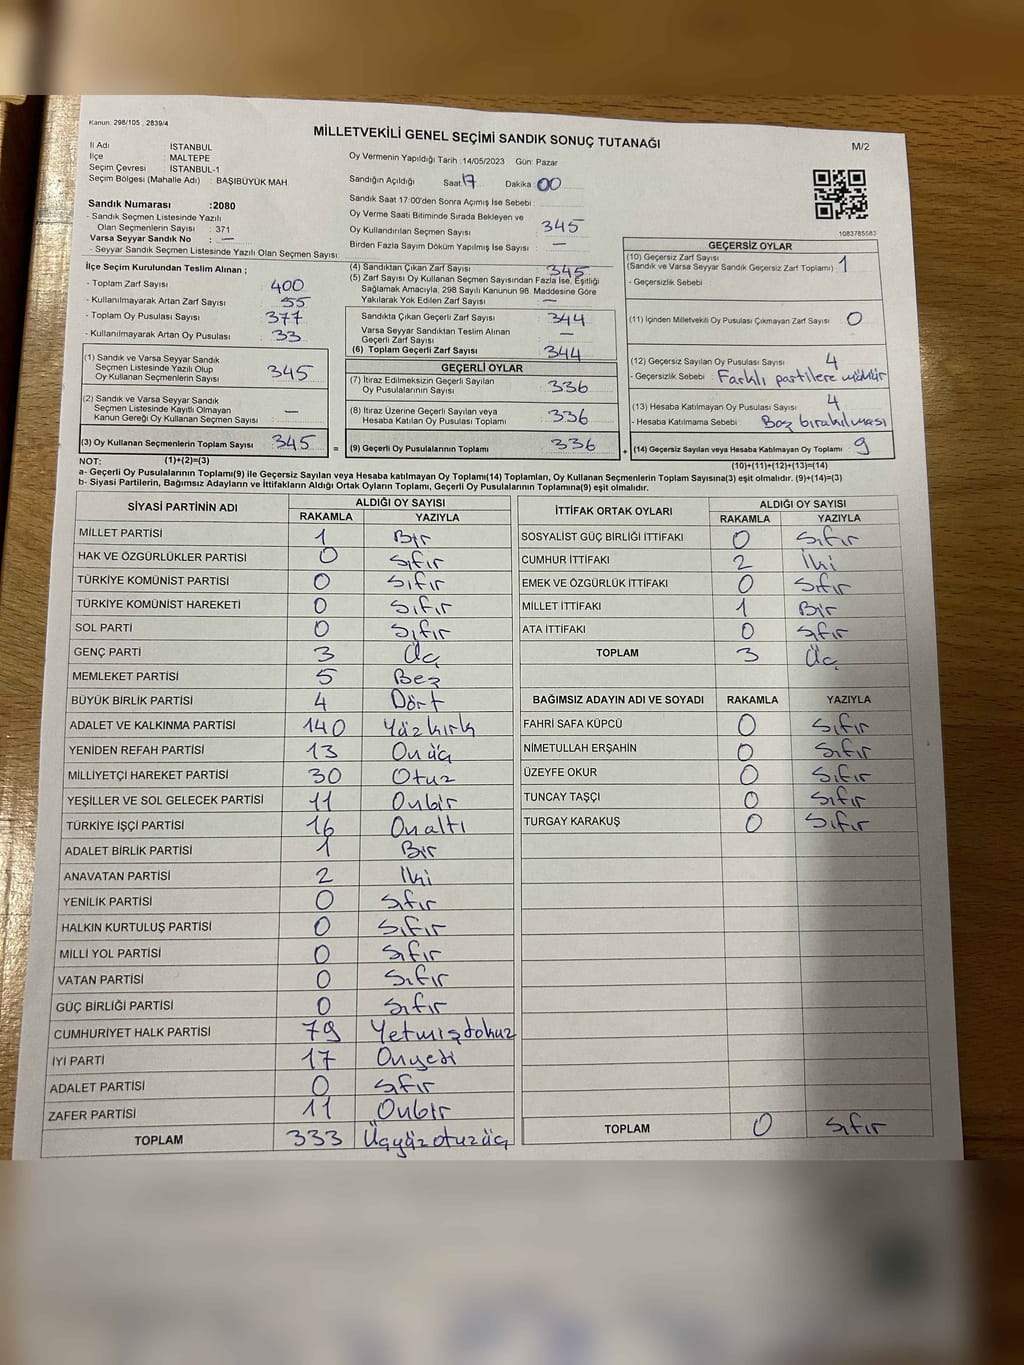 Kanun. 298/105 , 2839/4
MİLLETVEKİLİ GENEL SEÇİMİ SANDIK SONUÇ TUTANAĞI
M/2
İl Adı İSTANBUL
İlçe MALTEPE
Seçim Çevresi : İSTANBUL-1
Seçim Bölgesi (Mahalle Adı) : BAŞIBÜYÜK MAH
Sandık Numarası :2080
- Sandık Seçmen Listesinde Yazılı
Olan Seçmenlerin Sayısı : 371
Varsa Seyyar Sandık No : —
- Seyyar Sandık Seçmen Listesinde Yazılı Olan Seçmen Sayısı:
Oy Vermenin Yapıldığı Tarih :14/05/2023 Gün: Pazar
Sandığın Açıldığı Saat: 17 Dakika : 00
Sandık Saat 17:00'den Sonra Açımış İse Sebebi :
Oy Verme Saati Bitiminde Sırada Bekleyen ve
Oy Kullandırılan Seçmen Sayısı 345
Birden Fazla Sayım Döküm Yapılmış İse Sayısı —
1083785583
İlçe Seçim Kurulundan Teslim Alınan ;
- Toplam Zarf Sayısı 400
- Kullanılmayarak Artan Zarf Sayısı 55
- Toplam Oy Pusulası Sayısı 377
- Kullanılmayarak Artan Oy Pusulası 33
(1) Sandık ve Varsa Seyyar Sandık
Seçmen Listesinde Yazılı Olup
Oy Kullanan Seçmenlerin Sayısı 345
(2) Sandık ve Varsa Seyyar Sandık
Seçmen Listesinde Kayıtlı Olmayan
Kanun Gereği Oy Kullanan Seçmen Sayısı —
(3) Oy Kullanan Seçmenlerin Toplam Sayısı 345 =
(4) Sandıktan Çıkan Zarf Sayısı 345
(5) Zarf Sayısı Oy Kullanan Seçmen Sayısından Fazla İse, Eşitliği
Sağlamak Amacıyla, 298 Sayılı Kanunun 98. Maddesine Göre
Yakılarak Yok Edilen Zarf Sayısı —
Sandıkta Çıkan Geçerli Zarf Sayısı 344
Varsa Seyyar Sandıktan Teslim Alınan
Geçerli Zarf Sayısı —
(6) Toplam Geçerli Zarf Sayısı 344
GEÇERLİ OYLAR
(7) İtiraz Edilmeksizin Geçerli Sayılan
Oy Pusulalarının Sayısı 336
(8) İtiraz Üzerine Geçerli Sayılan veya
Hesaba Katılan Oy Pusulaları Toplamı 336
(9) Geçerli Oy Pusulalarının Toplamı 336 +
GEÇERSİZ OYLAR
(10) Geçersiz Zarf Sayısı
(Sandık ve Varsa Seyyar Sandık Geçersiz Zarf Toplamı) 1
- Geçersizlik Sebebi :
(11) İçinden Milletvekili Oy Pusulası Çıkmayan Zarf Sayısı 0
(12) Geçersiz Sayılan Oy Pusulası Sayısı 4
- Geçersizlik Sebebi : Farklı partilere mühür
(13) Hesaba Katılmayan Oy Pusulası Sayısı 4
- Hesaba Katılmama Sebebi : Boş bırakılması
(14) Geçersiz Sayılan veya Hesaba Katılmayan Oy Toplamı 9
NOT: (1)+(2)=(3) (10)+(11)+(12)+(13)=(14)
a- Geçerli Oy Pusulalarının Toplamı(9) ile Geçersiz Sayılan veya Hesaba katılmayan Oy Toplamı(14) Toplamları, Oy Kullanan Seçmenlerin Toplam Sayısına(3) eşit olmalıdır. (9)+(14)=(3)
b- Siyasi Partilerin, Bağımsız Adayların ve İttifakların Aldığı Ortak Oyların Toplamı, Geçerli Oy Pusulalarının Toplamına(9) eşit olmalıdır.
SİYASİ PARTİNİN ADI ALDIĞI OY SAYISI
RAKAMLA YAZIYLA
MİLLET PARTİSİ 1 Bir
HAK VE ÖZGÜRLÜKLER PARTİSİ 0 Sıfır
TÜRKİYE KOMÜNİST PARTİSİ 0 Sıfır
TÜRKİYE KOMÜNİST HAREKETİ 0 Sıfır
SOL PARTİ 0 Sıfır
GENÇ PARTİ 3 Üç
MEMLEKET PARTİSİ 5 Beş
BÜYÜK BİRLİK PARTİSİ 4 Dört
ADALET VE KALKINMA PARTİSİ 140 Yüzkırk
YENİDEN REFAH PARTİSİ 13 Onüç
MİLLİYETÇİ HAREKET PARTİSİ 30 Otuz
YEŞİLLER VE SOL GELECEK PARTİSİ 11 Onbir
TÜRKİYE İŞÇİ PARTİSİ 16 Onaltı
ADALET BİRLİK PARTİSİ 1 Bir
ANAVATAN PARTİSİ 2 İki
YENİLİK PARTİSİ 0 Sıfır
HALKIN KURTULUŞ PARTİSİ 0 Sıfır
MİLLİ YOL PARTİSİ 0 Sıfır
VATAN PARTİSİ 0 Sıfır
GÜÇ BİRLİĞİ PARTİSİ 0 Sıfır
CUMHURİYET HALK PARTİSİ 79 Yetmişdokuz
İYİ PARTİ 17 Onyedi
ADALET PARTİSİ 0 Sıfır
ZAFER PARTİSİ 11 Onbir
TOPLAM 333 Üçyüzotuzüç
İTTİFAK ORTAK OYLARI ALDIĞI OY SAYISI
RAKAMLA YAZIYLA
SOSYALİST GÜÇ BİRLİĞİ İTTİFAKI 0 Sıfır
CUMHUR İTTİFAKI 2 İki
EMEK VE ÖZGÜRLÜK İTTİFAKI 0 Sıfır
MİLLET İTTİFAKI 1 Bir
ATA İTTİFAKI 0 Sıfır
TOPLAM 3 Üç
BAĞIMSIZ ADAYIN ADI VE SOYADI RAKAMLA YAZIYLA
FAHRİ SAFA KÜPCÜ 0 Sıfır
NİMETULLAH ERŞAHİN 0 Sıfır
ÜZEYFE OKUR 0 Sıfır
TUNCAY TAŞÇI 0 Sıfır
TURGAY KARAKUŞ 0 Sıfır
TOPLAM 0 Sıfır